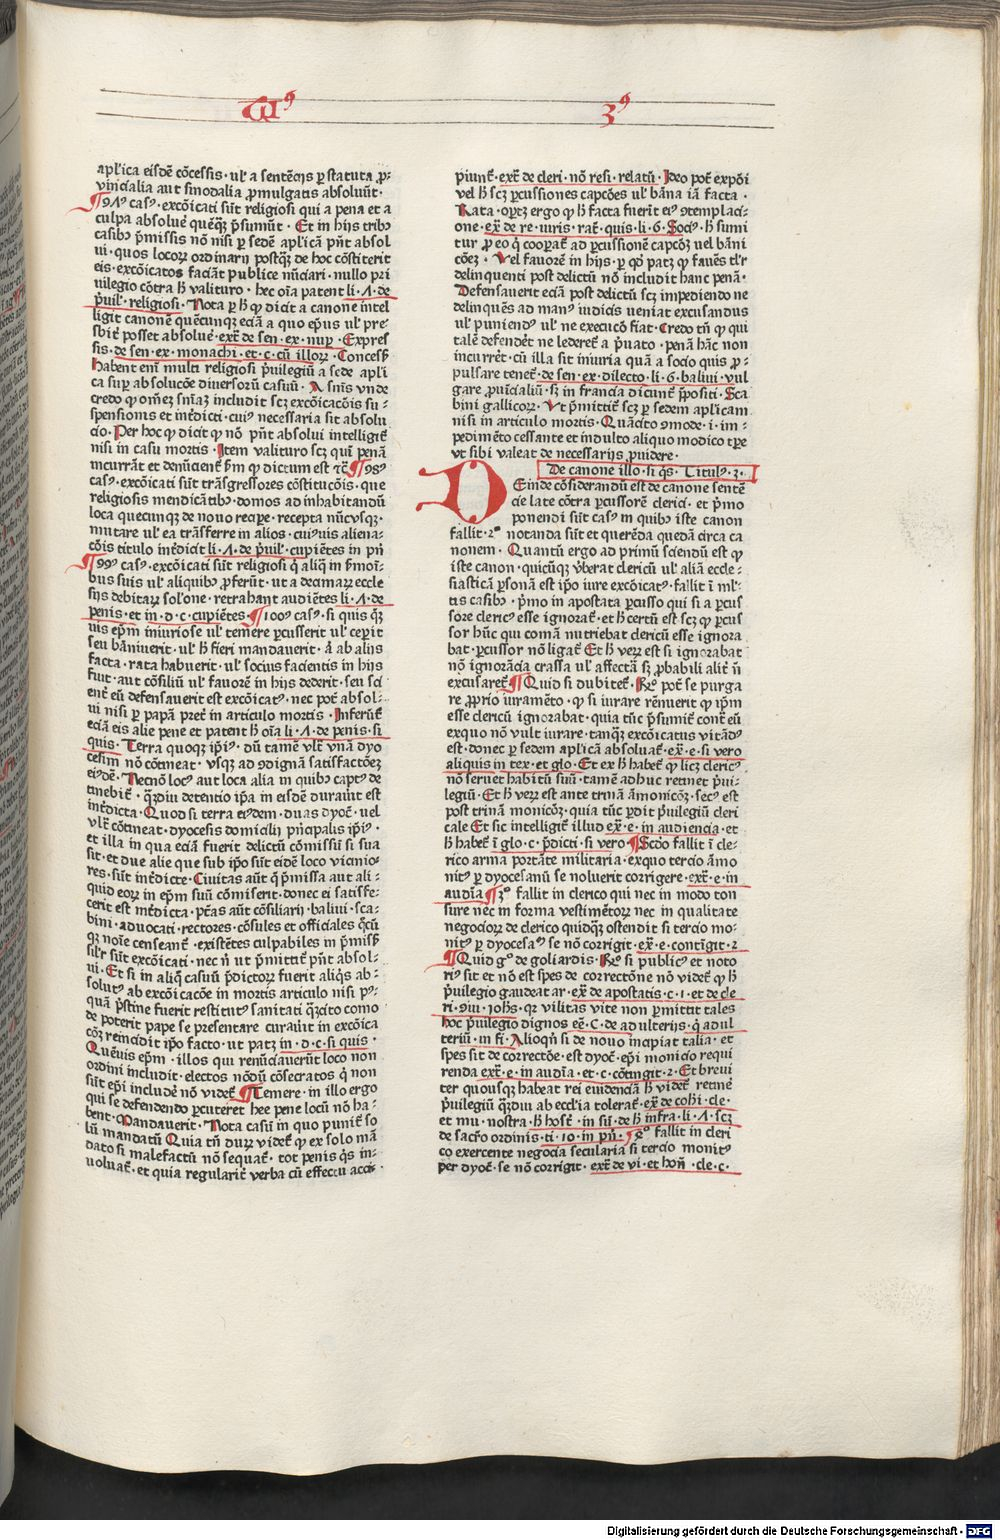 VIꝰ 3ꝰ
apl'ica eisdē cōcessis · ul' a sentēcijs ꝑ statuta ꝓ-
vincialia aut sinodalia ꝓmulgatis absoluūt ·
¶ 97ꝰ casꝰ · excōicati sūt religiosi qui a pena et a
culpa absolue᷑ quēqꝫ p̄sumūt · Et in hijs tribꝫ
casibꝫ p̄missis nō nisi ꝑ sedē apl'icā pn̄t absol
ui · quos locoꝝ ordinarij postqꝫ de hoc cōstiterit
eis · excōicatos faciāt publice nūciari · nullo pri
uilegio cōtra h̄ valituro · hec oīa patent li · 7 · de
p̄uil' · religiosi · Nota ꝑ h̄ ꝙ dicit a canone intel
ligit canonē quēcunqꝫ eciā a quo ep̄us ul' pre-
sbit᷑ posset absolue᷑ · ext᷑ de sen · ex · nup᷑ · Expres
sis · de sen · ex · monachi · et · c · cū illoꝝ · Concess᷑
Habent enī multi religiosi p̄uilegiū a sede apl'i
ca suꝑ absolucōe diuersoꝝ casuū · A sn̄is vnde
credo ꝙ om̄eꝫ sn̄iaꝫ includit scꝫ excōicacōis su-
spensionis et int᷑dicti · cuiꝰ necessaria sit absolu
cio · Per hoc ꝙ dicit ꝙ nō pn̄t absolui intelligit᷑
nisi in casu mortis · Item valituro scꝫ qui penā
incurrāt et denūcient᷑ p̄m ꝙ dictum est ⁊c̄ ¶ 98ꝰ
casꝰ · excōicati sūt trāsgressores cōstitucōis · que
religiosis mendicātibꝫ · domos ad inhabitandū
loca quecunqꝫ de nouo reciꝑe · recepta nūcvsqꝫ ·
mutare ul' ea trāsferre in alios · cuiꝰuis aliena-
cōis titulo int᷑dicit li · 7 · de p̄uil' · cupiētes in pn̄
¶ 99ꝰ casꝰ · excōicati sūt religiosi q̄ aliq̄ in s᷑moī-
bus suis ul' aliquibꝫ ꝓferūt · ut a decimaꝝ eccle
sijs debitaꝝ sol'one · retrahant audiētes li · 7 · de
penis · et in · d · c · cupiētes · ¶ 100ꝰ casꝰ · si quis qꝫ
uis ep̄m iniuriose ul' temere ꝑcusserit ul' cepit
seu bānierit · ul' h̄ fieri mandauerit · A ab alijs
facta · rata habuerit · ul' socius facientis in hijs
fuit · aut cōsiliū ul' fauorē in hijs dederit · seu sci
ent᷑ eū defensauerit est excōicatꝰ · nec pot᷑ absol-
ui nisi ꝑ papā pret᷑ in articulo mortis · Inferūt᷑
eciā eis alie pene et patent h̄ oīa li · 7 · de penis · si
quis · Terra quoqꝫ ip̄iꝰ · dū tamē vl't᷑ vnā dyo
cesim nō cōtineat · vsqꝫ ad ꝯdignā satisfactōeꝫ
eiꝰdē · Necnō locꝰ aut loca alia in quibꝫ captꝰ de
tinebit᷑ · qꝫdiu detentio ip̄a in eisdē durauit est
int᷑dicta · Quod si terra eiꝰdem · duas dyoc᷑ · vel
vl't᷑ cōtineat · dyocesis domicilij p̄ncipalis ip̄iꝰ ·
et illa in qua eciā fuerit delictū cōmissū si sua
sit · et due alie que sub ip̄o sūt eidē loco vicinio-
res · sūt int᷑dicte · Ciuitas aūt q̄ p̄missa aut ali-
quid eoꝝ in ep̄m suū cōmiserit · donec ei satisfe-
cerit est int᷑dicta · pt̄as aūt cōsiliarij · baliui · sca-
bini · aduocati · rectores · cōsules et officiales q̄cū
qꝫ noīe censeant᷑ · existētes culpabiles in p̄missꝭ
sil'r sūt excōicati · nec n̄ ut p̄mittit᷑ pn̄t absol-
ui · Et si in aliq̄ casuū p̄dictoꝝ fuerit aliq̄s ab-
solutꝰ ab excōicacōe in mortis articulo nisi pꝰ-
quā p̄stine fuerit restitutꝰ sanitati qꝫcito como
de poterit pape se presentare curauit in excōica
cōꝫ reincidit ip̄o facto · ut patꝫ in · d · c · si quis ·
Quēuis ep̄m · illos qui renūciauerūt loco non
ordini includit · electos nōdū cōsecratos q̄ non
sūt ep̄i include᷑ nō videt᷑ ¶ Temere · in illo ergo
qui se defendendo ꝑcuteret hee pene locū nō ha-
bent · Mandauerit · Nota casū in quo punit᷑ so
lū mandatū Quia tn̄ duꝝ videt᷑ ꝙ ex solo mā
dato si malefactū nō sequat᷑ · tot penis q̄s in-
uoluat᷑ · et quia regularit᷑ verba cū effectu acci-
piunt᷑ · ext᷑ de cleri · nō resi · relatū · Ideo pot᷑ expōi
vel h̄ scꝫ ꝑcussiones capcōes ul' bāna iā facta ·
Rata · oꝑtꝫ ergo ꝙ h̄ facta fuerit eiꝰ ꝯtemplaci-
one · ex᷑ de re · iuris · rat᷑ · quis · li · 6 · Sociꝰ · h̄ sumi
tur ꝓ eo q̄ cooꝑat᷑ ad ꝑcussionē capcōeꝫ uel bāni
cōeꝫ · Vel fauorē in hijs · ꝑ qd̄ patꝫ ꝙ fauēs tl'r
delinquenti post delictū nō includit hanc penā ·
Defensauerit eciā post delictū scꝫ impediendo ne
delinquēs ad manꝰ iudicis veniat excusandus
ul' puniendꝰ ul' ne execucō fiat · Credo tn̄ ꝙ qui
talē defendēt ne lederet᷑ a p̄uato · penā hāc non
incurrēt · cū illa sit iniuria quā a socio quis ꝓ-
pulsare tenet᷑ · de sen · ex · dilecto · li · 6 · baliui · vul
gare ꝓuīcialiū · sꝫ in francia dicunt᷑ p̄positi · Sca
bini gallicoꝝ · Vt p̄mittit᷑ scꝫ ꝑ sedem apl'icam
nisi in articulo mortis · Quācito ꝯmode · i · im-
pedimēto cessante et indulto aliquo modico tꝑe
vt sibi valeat de necessarijs ꝓuidere ·
De canone illo · si q̄s · Titulꝰ · 3 ·
DEinde cōsiderandū est de canone sentē
cie late cōtra ꝑcussorē clerici · et p̄mo
ponendi sūt casꝰ in quibꝫ iste canon
fallit · 2º notanda sūt et querēda quedā circa ca
nonem · Quantū ergo ad primū sciendū est ꝙ
iste canon · quicūqꝫ v᷑berat clericū ul' aliā eccle-
siasticā ꝑsonā est ip̄o iure excōicatꝰ · fallit ī ml'-
tis casibꝫ · p̄mo in apostata ꝑcusso qui si a ꝑcus
sore clericꝰ esse ignorat᷑ · et h̄ certū est scꝫ ꝙ ꝑcus
sor hūc qui comā nutriebat clericū esse ignora
bat · ꝑcussor nō ligat᷑ Et h̄ veꝝ est si ignorabat
nō ignorācia crassa ul' affectā sꝫ ꝓbabili alit᷑ n̄
excusaret᷑ ¶ Quid si dubitet᷑ · Rº pot᷑ se purga
re ꝓprio iuramēto · ꝙ si iurare renuerit ꝙ ip̄m
esse clericū ignorabat · quia tūc p̄sumit᷑ cont᷑ eū
exquo nō vult iurare · tanqꝫ excōicatus vitādꝰ
est · donec ꝑ sedem apl'icā absoluat᷑ · ex᷑ · e · si vero
aliquis in tex · et glo · Et ex h̄ habet᷑ ꝙ licꝫ clericꝰ
nō seruet habitū suū · tamē adhuc retinet p̄ui-
legiū · Et h̄ veꝝ est ante trinā āmonicōꝫ · secꝰ est
post trinā monicōꝫ · quia tūc ꝑdit p̄uilegiū cleri
cale Et sic intelligit᷑ illud ex᷑ · e · in audiencia · et
h̄ habet᷑ ī glo · c · p̄dicti · si vero · ¶ Scd̄o fallit ī cle-
rico arma portāte militaria · exquo tercio āmo
nitꝰ ꝑ dyocesanū se noluerit corrigere · ext᷑ · e · in
audīa ¶ 3º fallit in clerico qui nec in modo ton
sure nec in forma vestimētoꝝ nec in qualitate
negocioꝝ de clerico quidqꝫ ostendit si tercio mo-
nitꝰ ꝑ dyocesaꝰ se nō corrigit · ex᷑ · e · contīgit · 2
¶ Quid gº de goliardis · Rº si publicꝰ et noto
riꝰ sit et nō est spes de correctōne nō videt᷑ ꝙ h̄
p̄uilegio gaudeat ar · ex᷑ de apostatis · c · 1 · et de cle
ri · ꝯiu · ioh̄s · qꝛ vilitas vite non ꝑmittit tales
hoc p̄uilegio dignos eē · C · de adulterijs · q̄ adul
teriū · in fi · Alioqn̄ si de nouo incipiat talia · et
spes sit de correctōe · est dyoc᷑ · ep̄i monicio requi
renda ext᷑ · e · in audīa · et · c · cōtingit · 2 · Et breui
ter quousqꝫ habeat rei euidenciā h̄ videt᷑ retine᷑
p̄uilegiū qꝫdiu ab eccl'ia tolerat᷑ · ex᷑ de cohī · cle ·
et mu · nostra · h̄ host᷑ · in sū · de h̄ infra · li · 7 · scꝫ
de sacr̄o ordinis · ti · 10 · in pn̄ · ¶ 4º fallit in cleri
co exercente negocia secularia si tercio monitꝰ
per dyoc᷑ · se nō corrigit · ext᷑ de vi · et hon̄ · cle · c ·
Digitalisierung gefördert durch die Deutsche Forschungsgemeinschaft - DFG